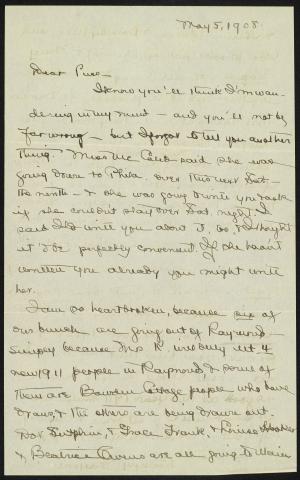 May 5, 1908.
Dear Puss —
I know you'll think I'm wan-
dering in my mind — and you'll not be
far wrong — but I forgot to tell you another
thing. Miss Mc said she was
going down to Phila. over this next Sat —
the ninth — & she was going to write you & ask
if she couldn't stay over Sat. night. I
said I'd write you about it, as I thought
it'd be perfectly convenient. If she hasn't
written you already you might write
her.
I am so heartbroken, because six of
our bunch are going out of Raymond —
simply because Mrs R. will only let 4
new 1911 people in Raymond, & some of
them are Cottage people who have
drawn, & the others are being drawn out.
Dot, & Grace Frank, & Louise
& Beatrice are all going to